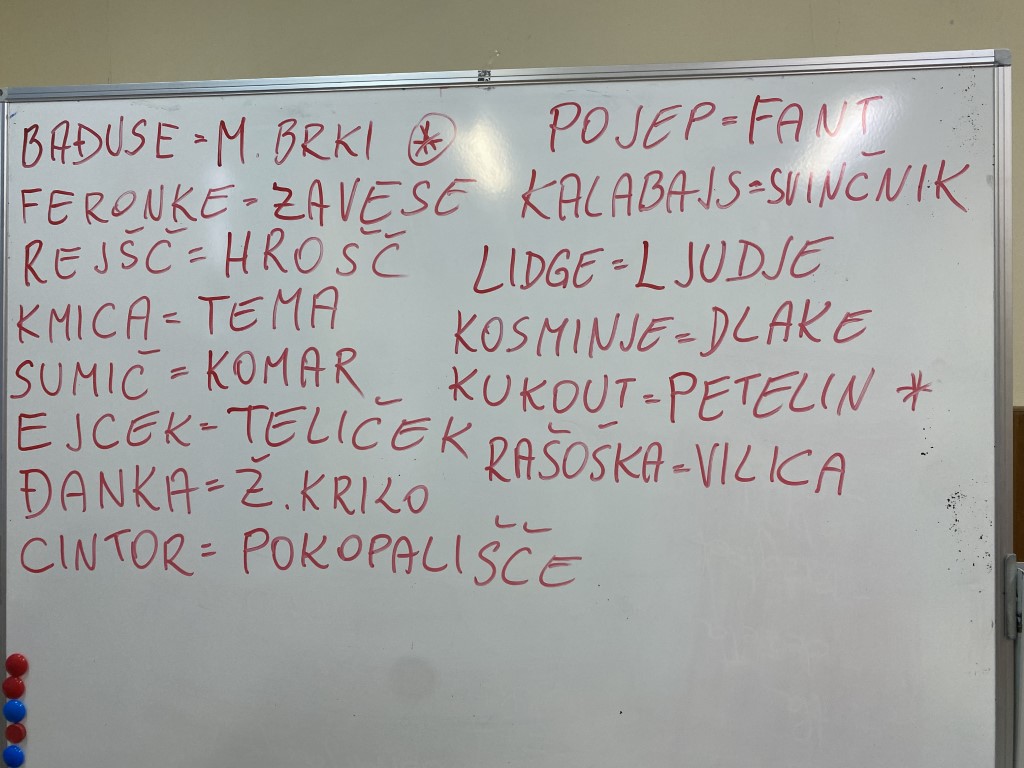 BAĐUSE = M. BRKI *
FERONKE = ZAVESE
REJŠČ = HROŠČ
KMICA = TEMA
SUMIČ = KOMAR
EJCEK = TELIČEK
ĐANKA = Ž. KRILO
CINTOR = POKOPALIŠČE
POJEP = FANT
KALABAJS = SVINČNIK
LIDGE = LJUDJE
KOSMINJE = DLAKE
KUKOUT = PETELIN *
RAŠOŠKA = VILICA